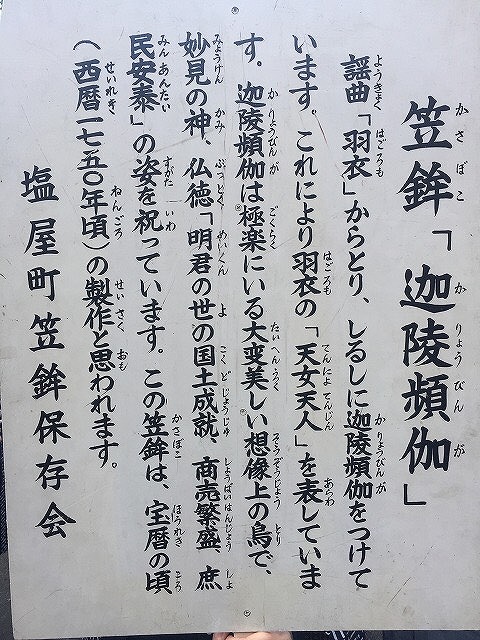 笠鉾「迦陵頻伽」
謡曲「羽衣」からとり、しるしに迦陵頻伽をつけて
います。これにより羽衣の「天女天人」を表していま
す。迦陵頻伽は極楽にいる大変美しい想像上の鳥で、
妙見の神、仏徳「明君の世の国土成就、商売繁盛、庶
民安泰」の姿を祝っています。この笠鉾は、宝暦の頃
(西暦一七五〇年頃)の製作と思われます。
塩屋町笠鉾保存会